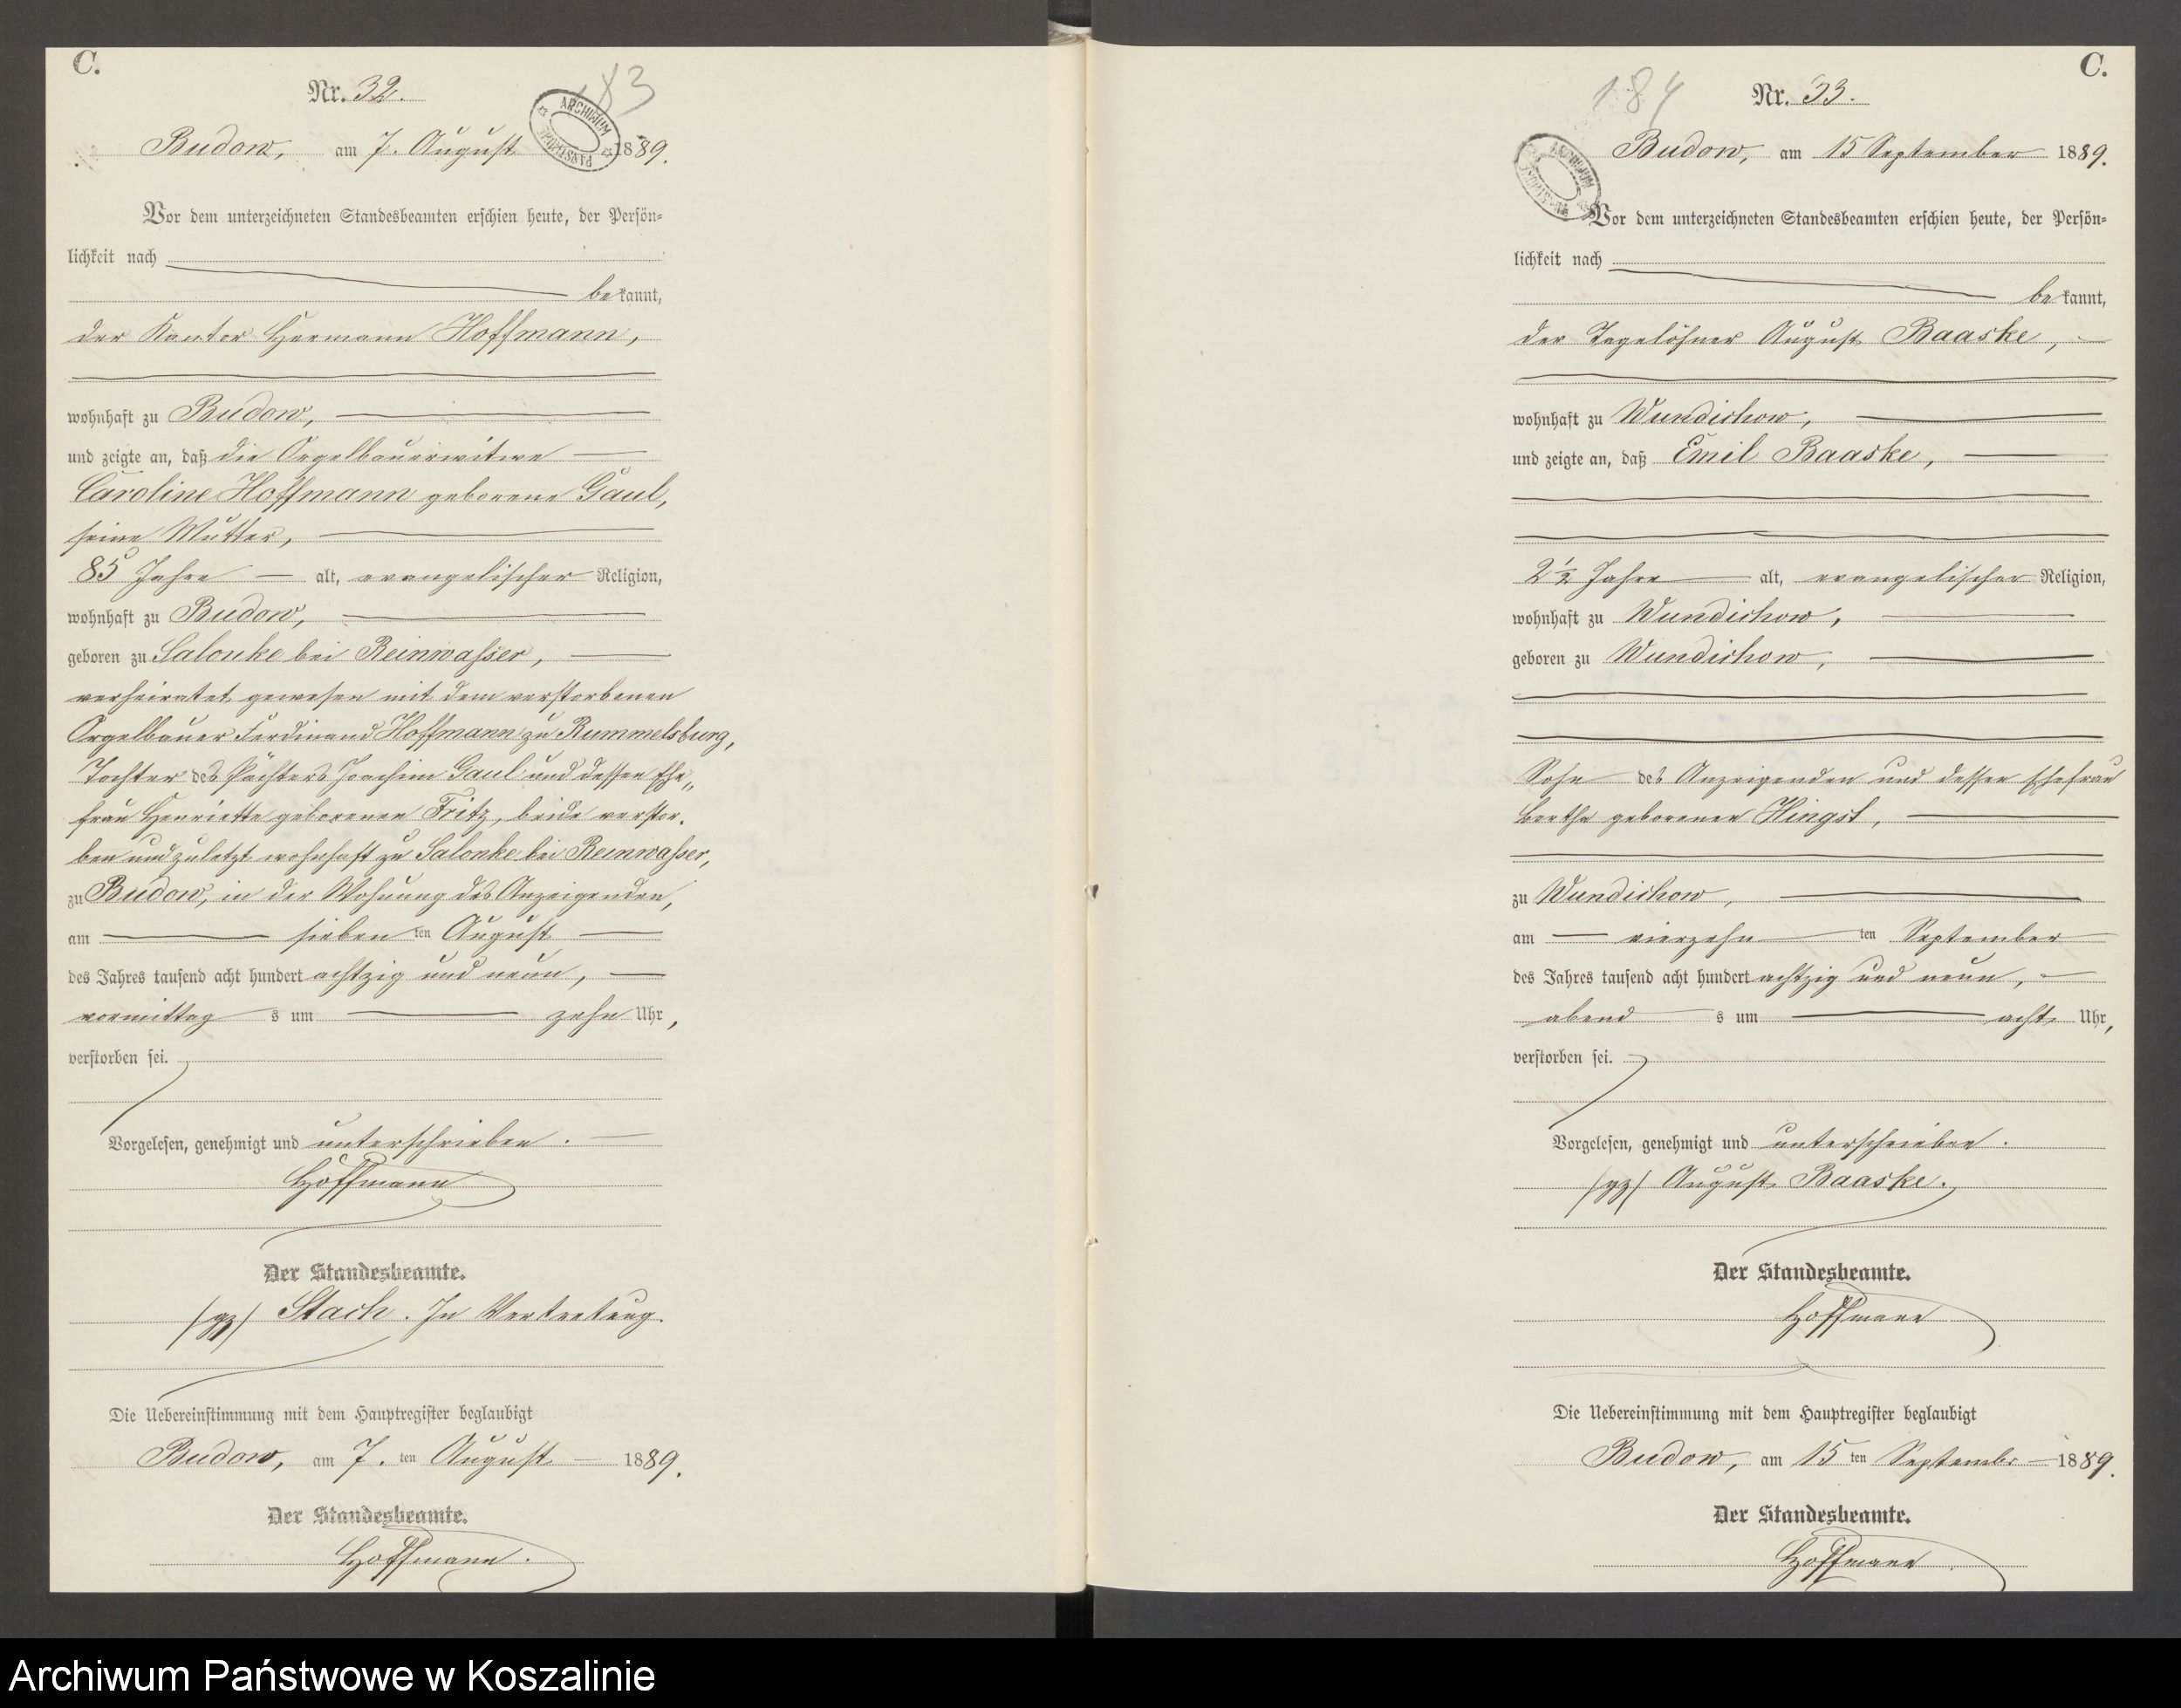 C.
Nr. 32.
183
ARCHIWUM PAŃSTWOWE
Budow, am 7. August 1889.
Vor dem unterzeichneten Standesbeamten erschien heute, der Persön-
lichkeit nach
bekannt,
der Kantor Hermann Hoffmann,
wohnhaft zu Budow,
und zeigte an, daß die Orgelbauerwitwe
Caroline Hoffmann geborene Gaul,
seine Mutter,
85 Jahre alt, evangelischer Religion,
wohnhaft zu Budow,
geboren zu Salonke bei Reinwasser,
verheiratet gewesen mit dem verstorbenen
Orgelbauer Ferdinand Hoffmann zu Rummelsburg,
Tochter des Pächters Joachim Gaul und dessen Ehe„
frau Henriette geborenen Fritz, beide verstor.
ben und zuletzt wohnhaft zu Salonke bei Reinwasser,
zu Budow, in der Wohnung des Anzeigenden,
am sieben ten August
des Jahres tausend acht hundert achtzig und neun,
vormittag s um zehn Uhr,
verstorben sei.
Vorgelesen, genehmigt und unterschrieben.
Hoffmann
Der Standesbeamte.
/gz/ Stach. In Vertretung.
Die Uebereinstimmung mit dem Hauptregister beglaubigt
Budow, am 7. ten August 1889.
Der Standesbeamte.
Hoffmann.
C.
184
Nr. 33.
Budow, am 15 September 1889.
Vor dem unterzeichneten Standesbeamten erschien heute, der Persön-
lichkeit nach
bekannt,
der Tagelöhner August Baaske,
wohnhaft zu Wundichow,
und zeigte an, daß Emil Baaske,
2½ Jahre alt, evangelischer Religion,
wohnhaft zu Wundichow,
geboren zu Wundichow,
Sohn des Anzeigenden und dessen Ehefrau
Bertha geborenen Hingst,
zu Wundichow,
am vierzehn ten September
des Jahres tausend acht hundert achtzig und neun,
abend s um acht Uhr,
verstorben sei.
Vorgelesen, genehmigt und unterschrieben.
/gz/ August Baaske.
Der Standesbeamte.
Hoffmann
Die Uebereinstimmung mit dem Hauptregister beglaubigt
Budow, am 15 ten Septembr 1889.
Der Standesbeamte.
Hoffmann
Archiwum Państwowe w Koszalinie